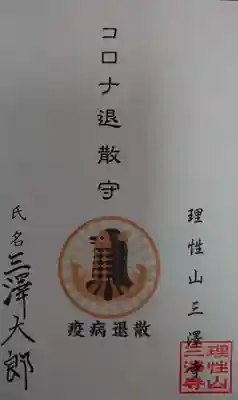 コロナ退散守
理性山三澤寺
疫病退散
氏名三澤大郎
理性山
三澤寺